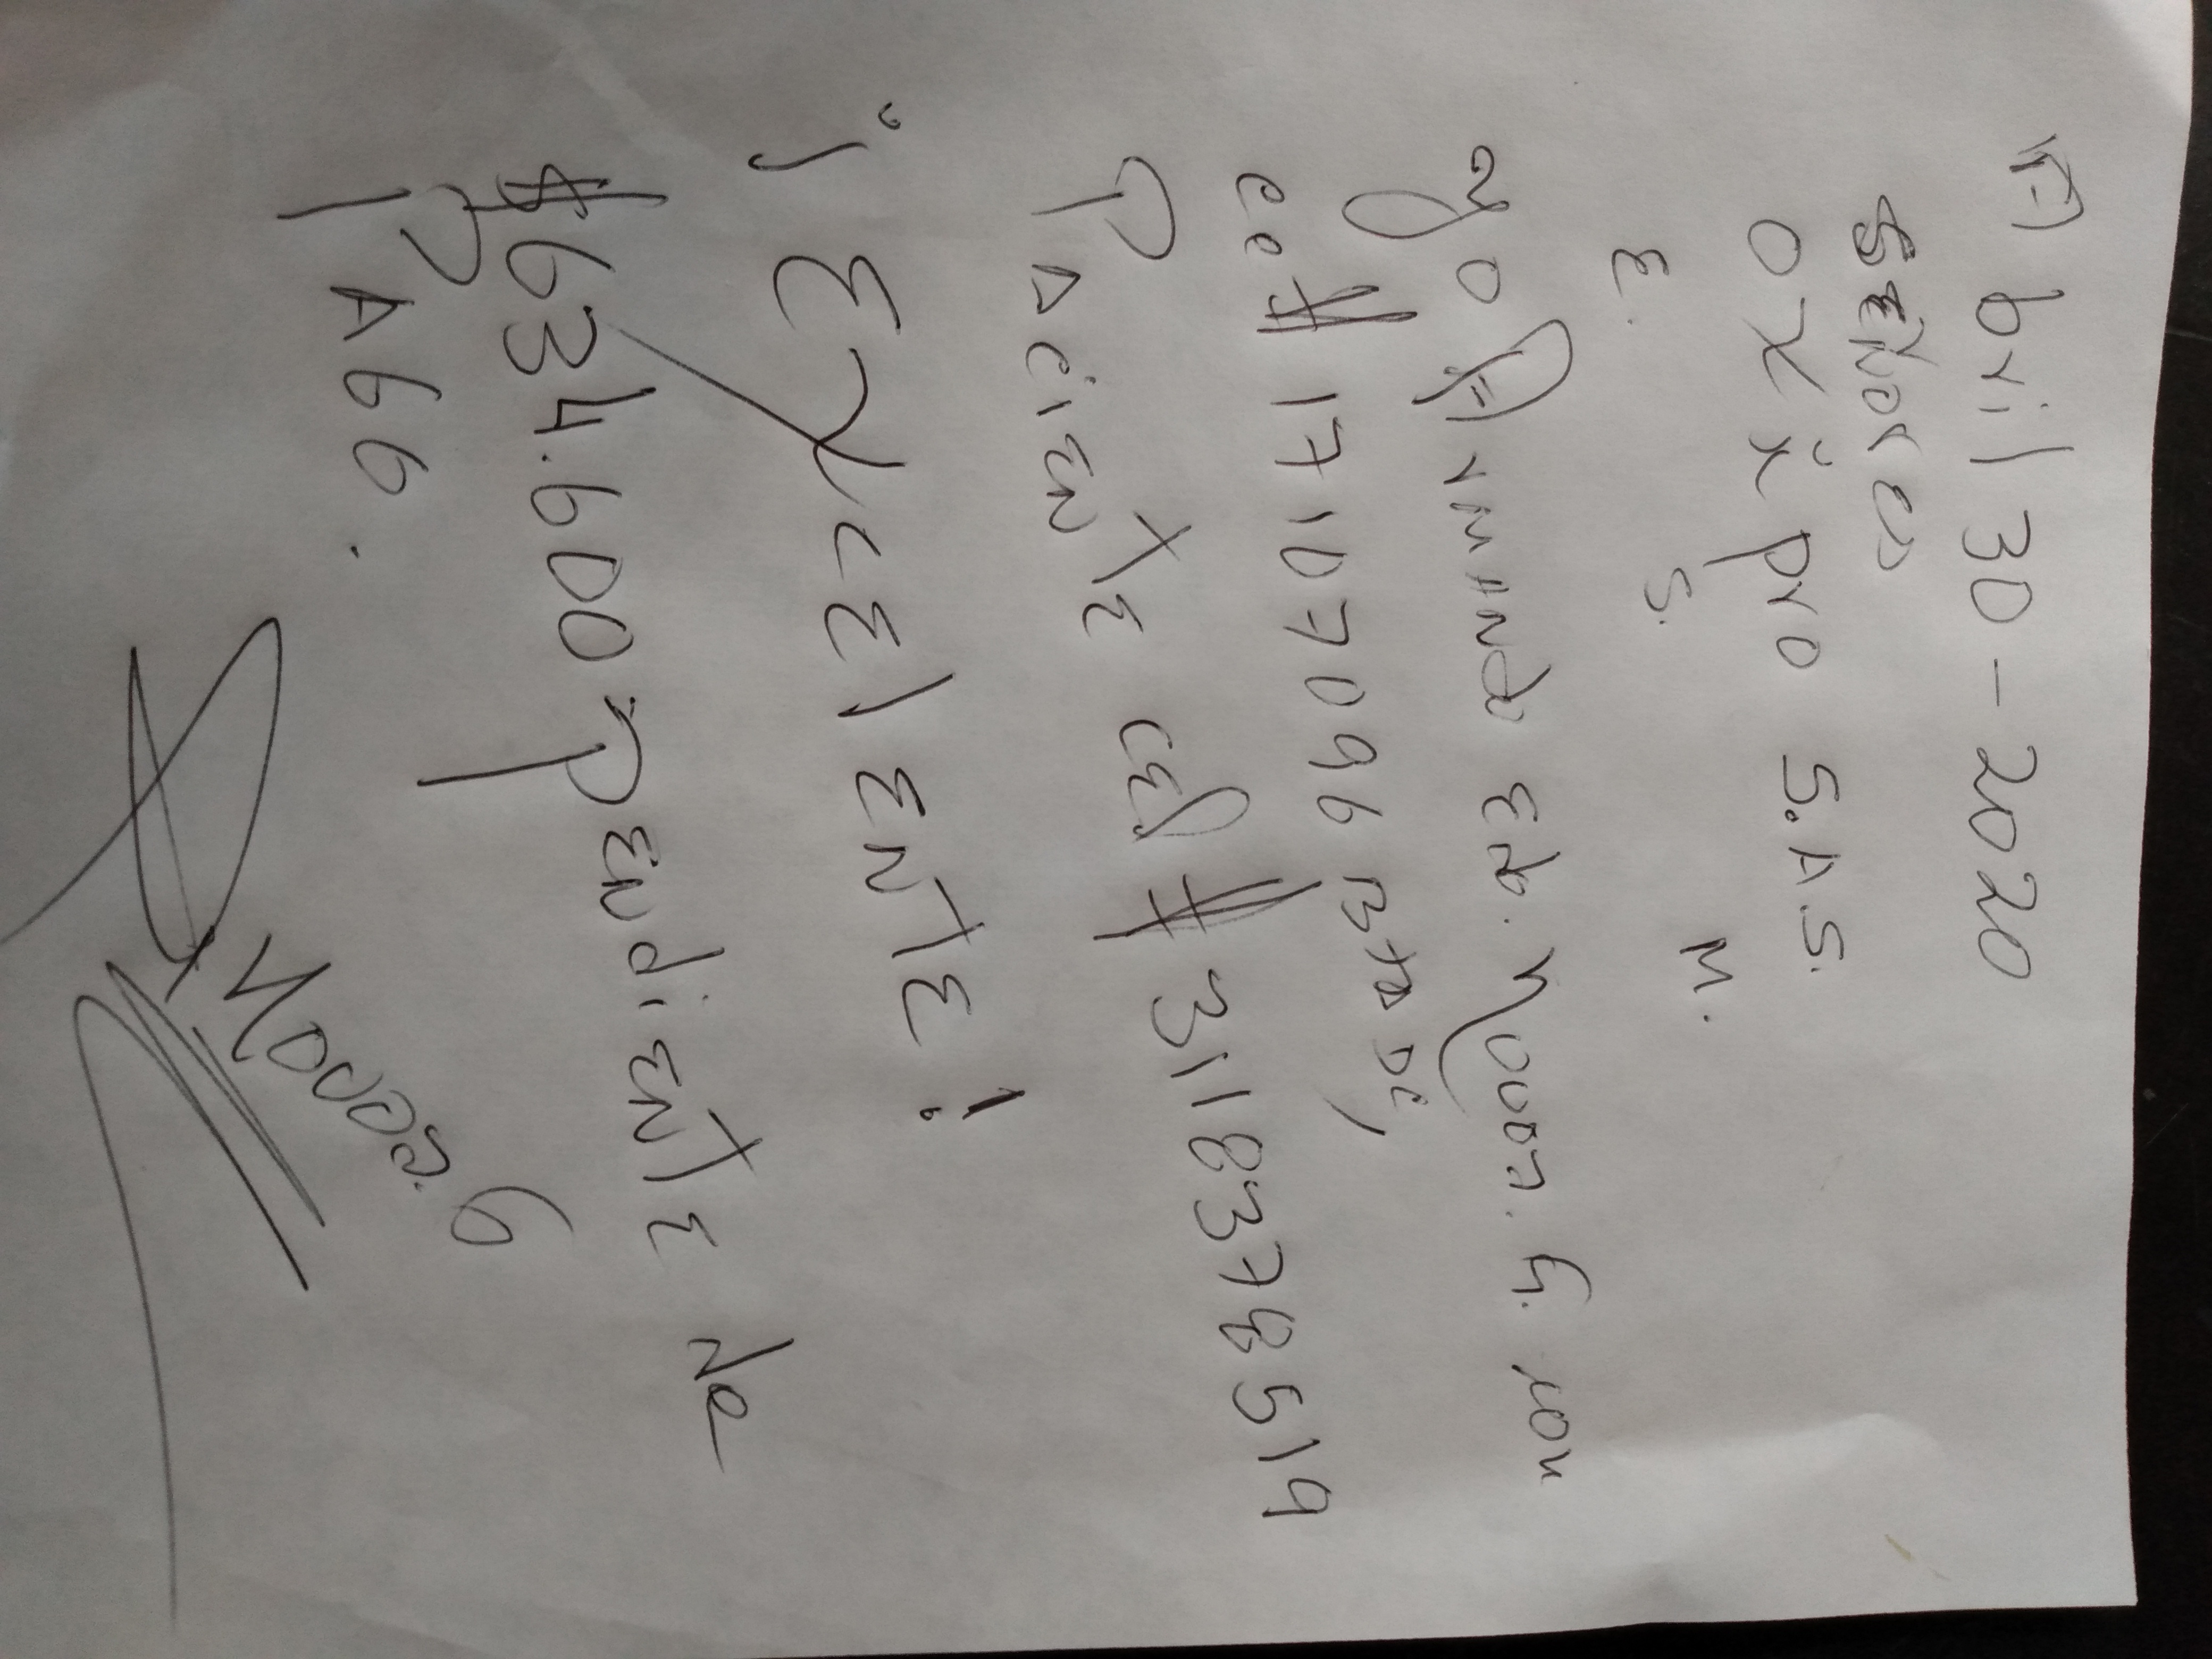 Abril 30 - 2020
SEÑores
OXipro S.A.S.
E. S. M.
yo Armando E
cc # 17107096 BTA DC,
PaciENTE CEl # 3118378519
¡ EXCElENTE !
$634.600 = PENdiENTE de
PAGO.